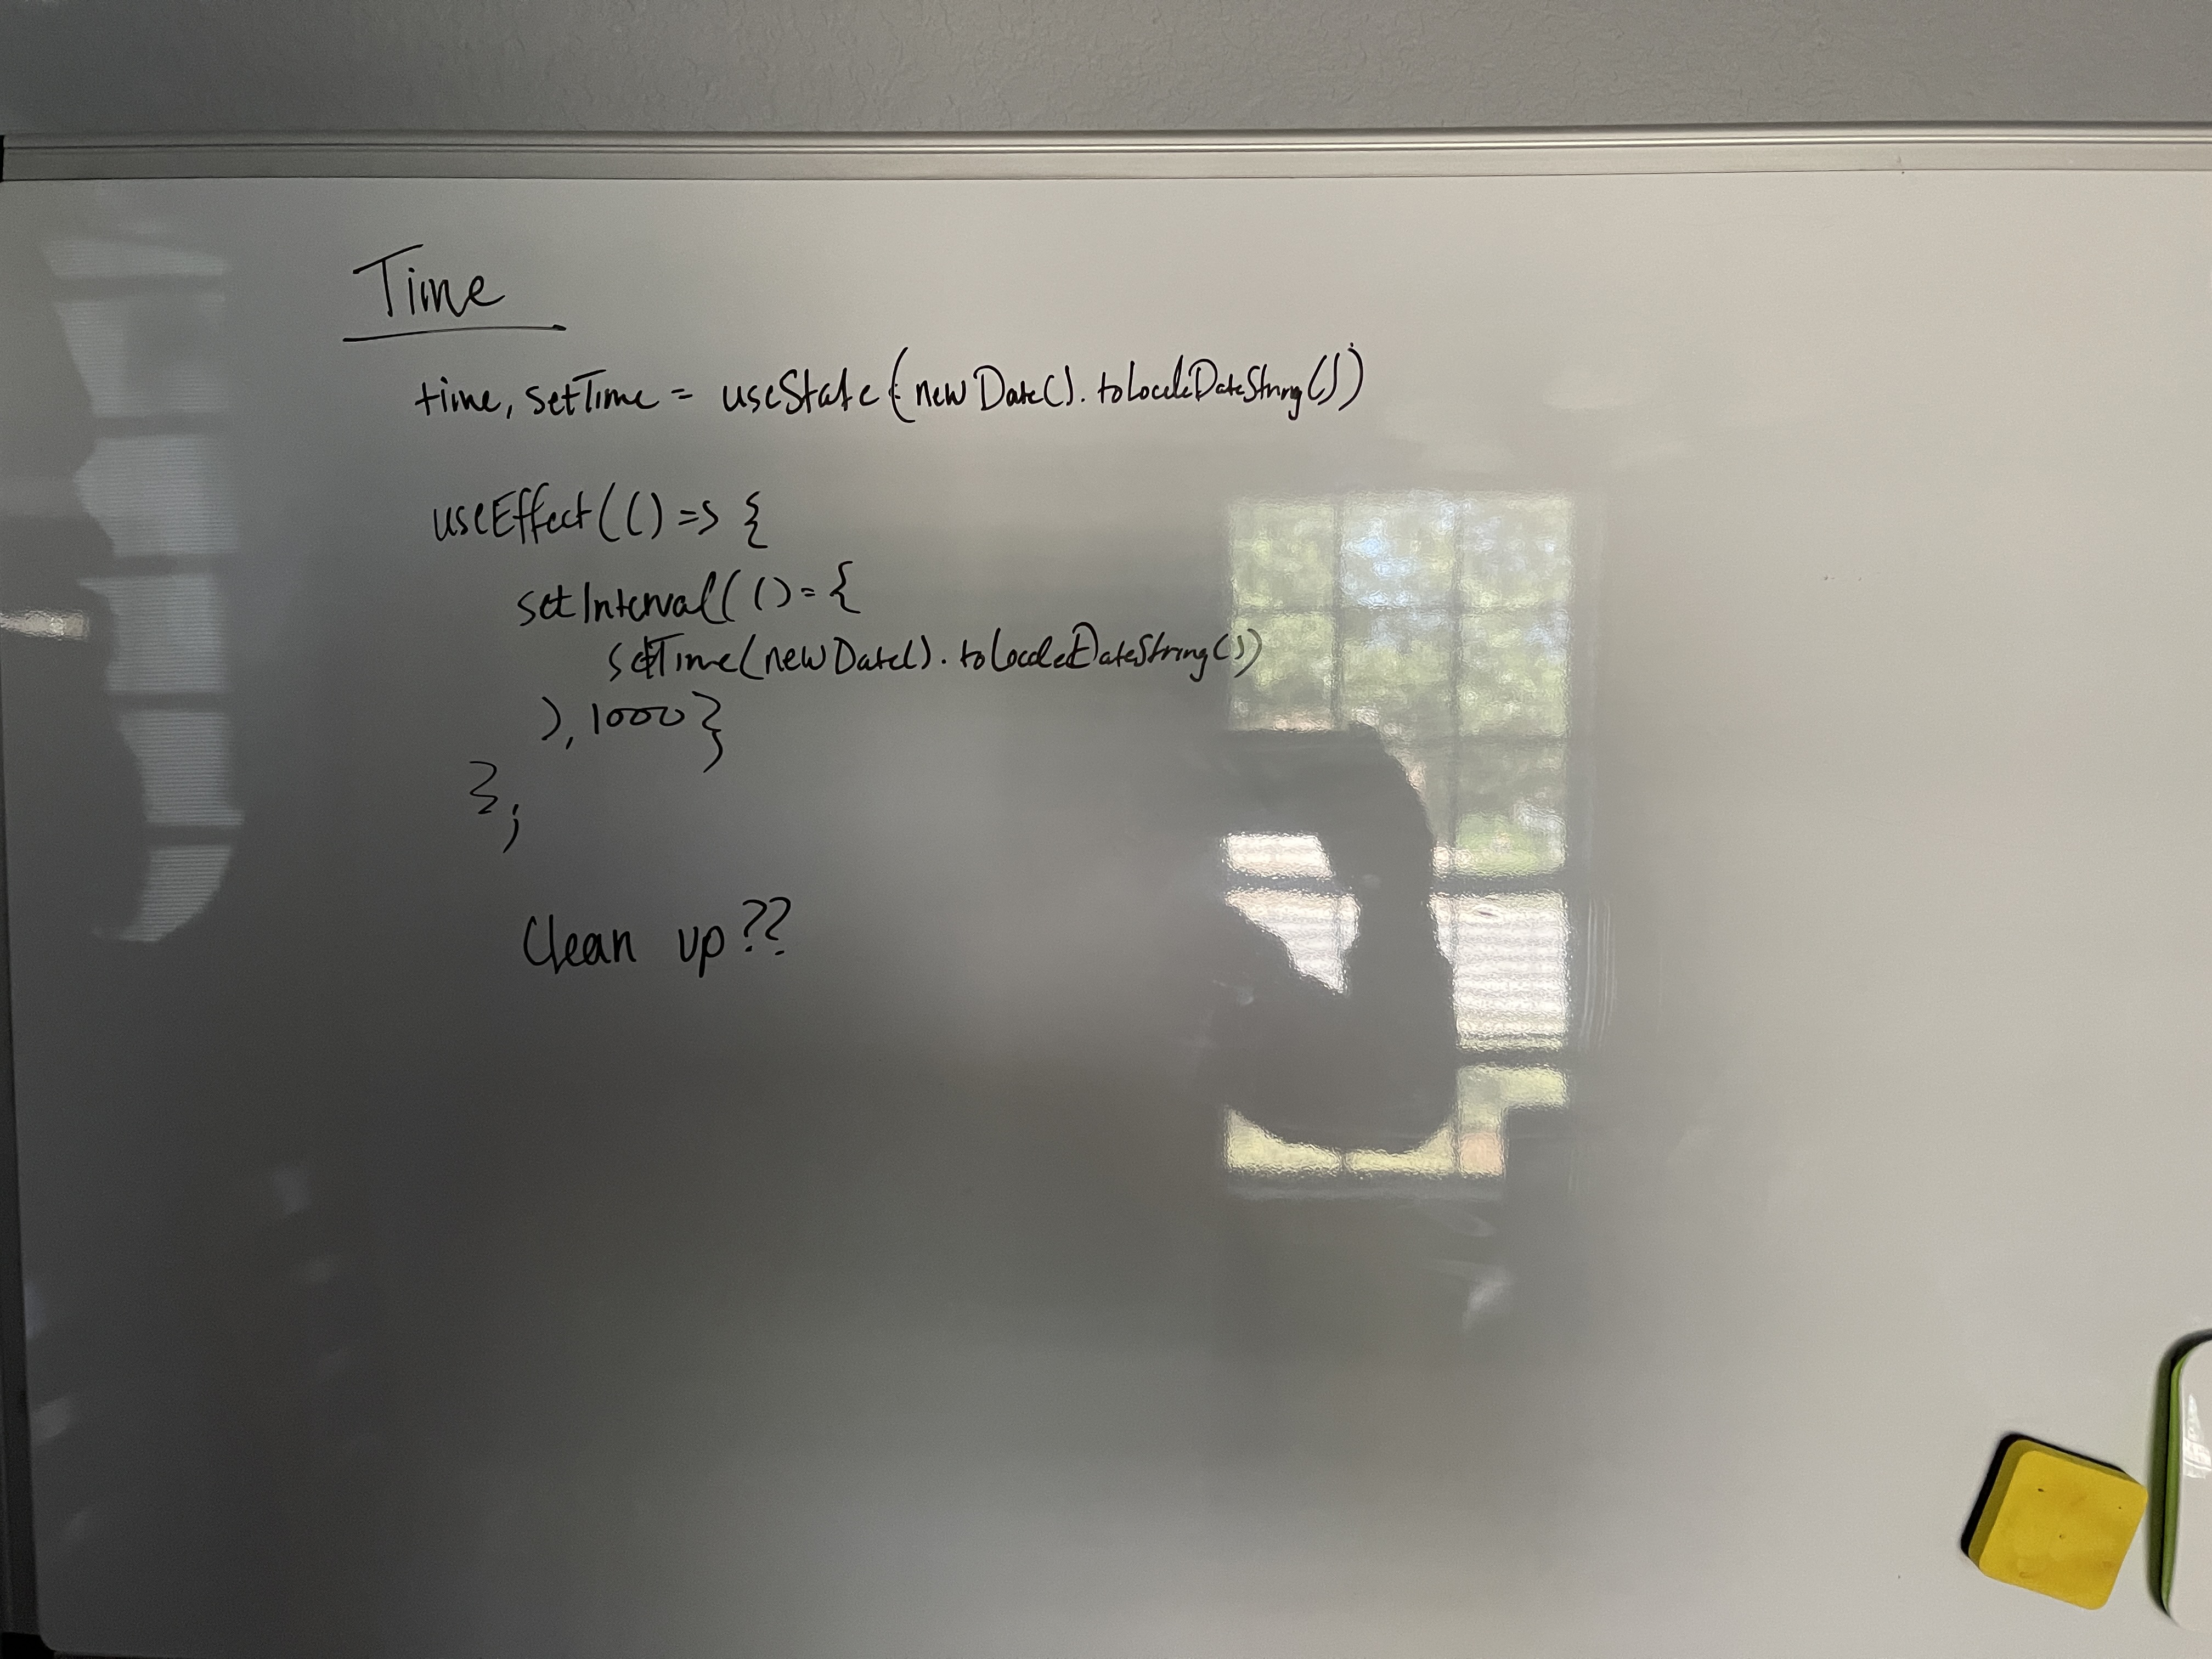 Time
time, setTime = useState(new Date().toLocaleDateString())
useEffect(() => {
setInterval(() = {
setTime(new Date().toLocaleDateString())
), 1000 }
};
Clean up??